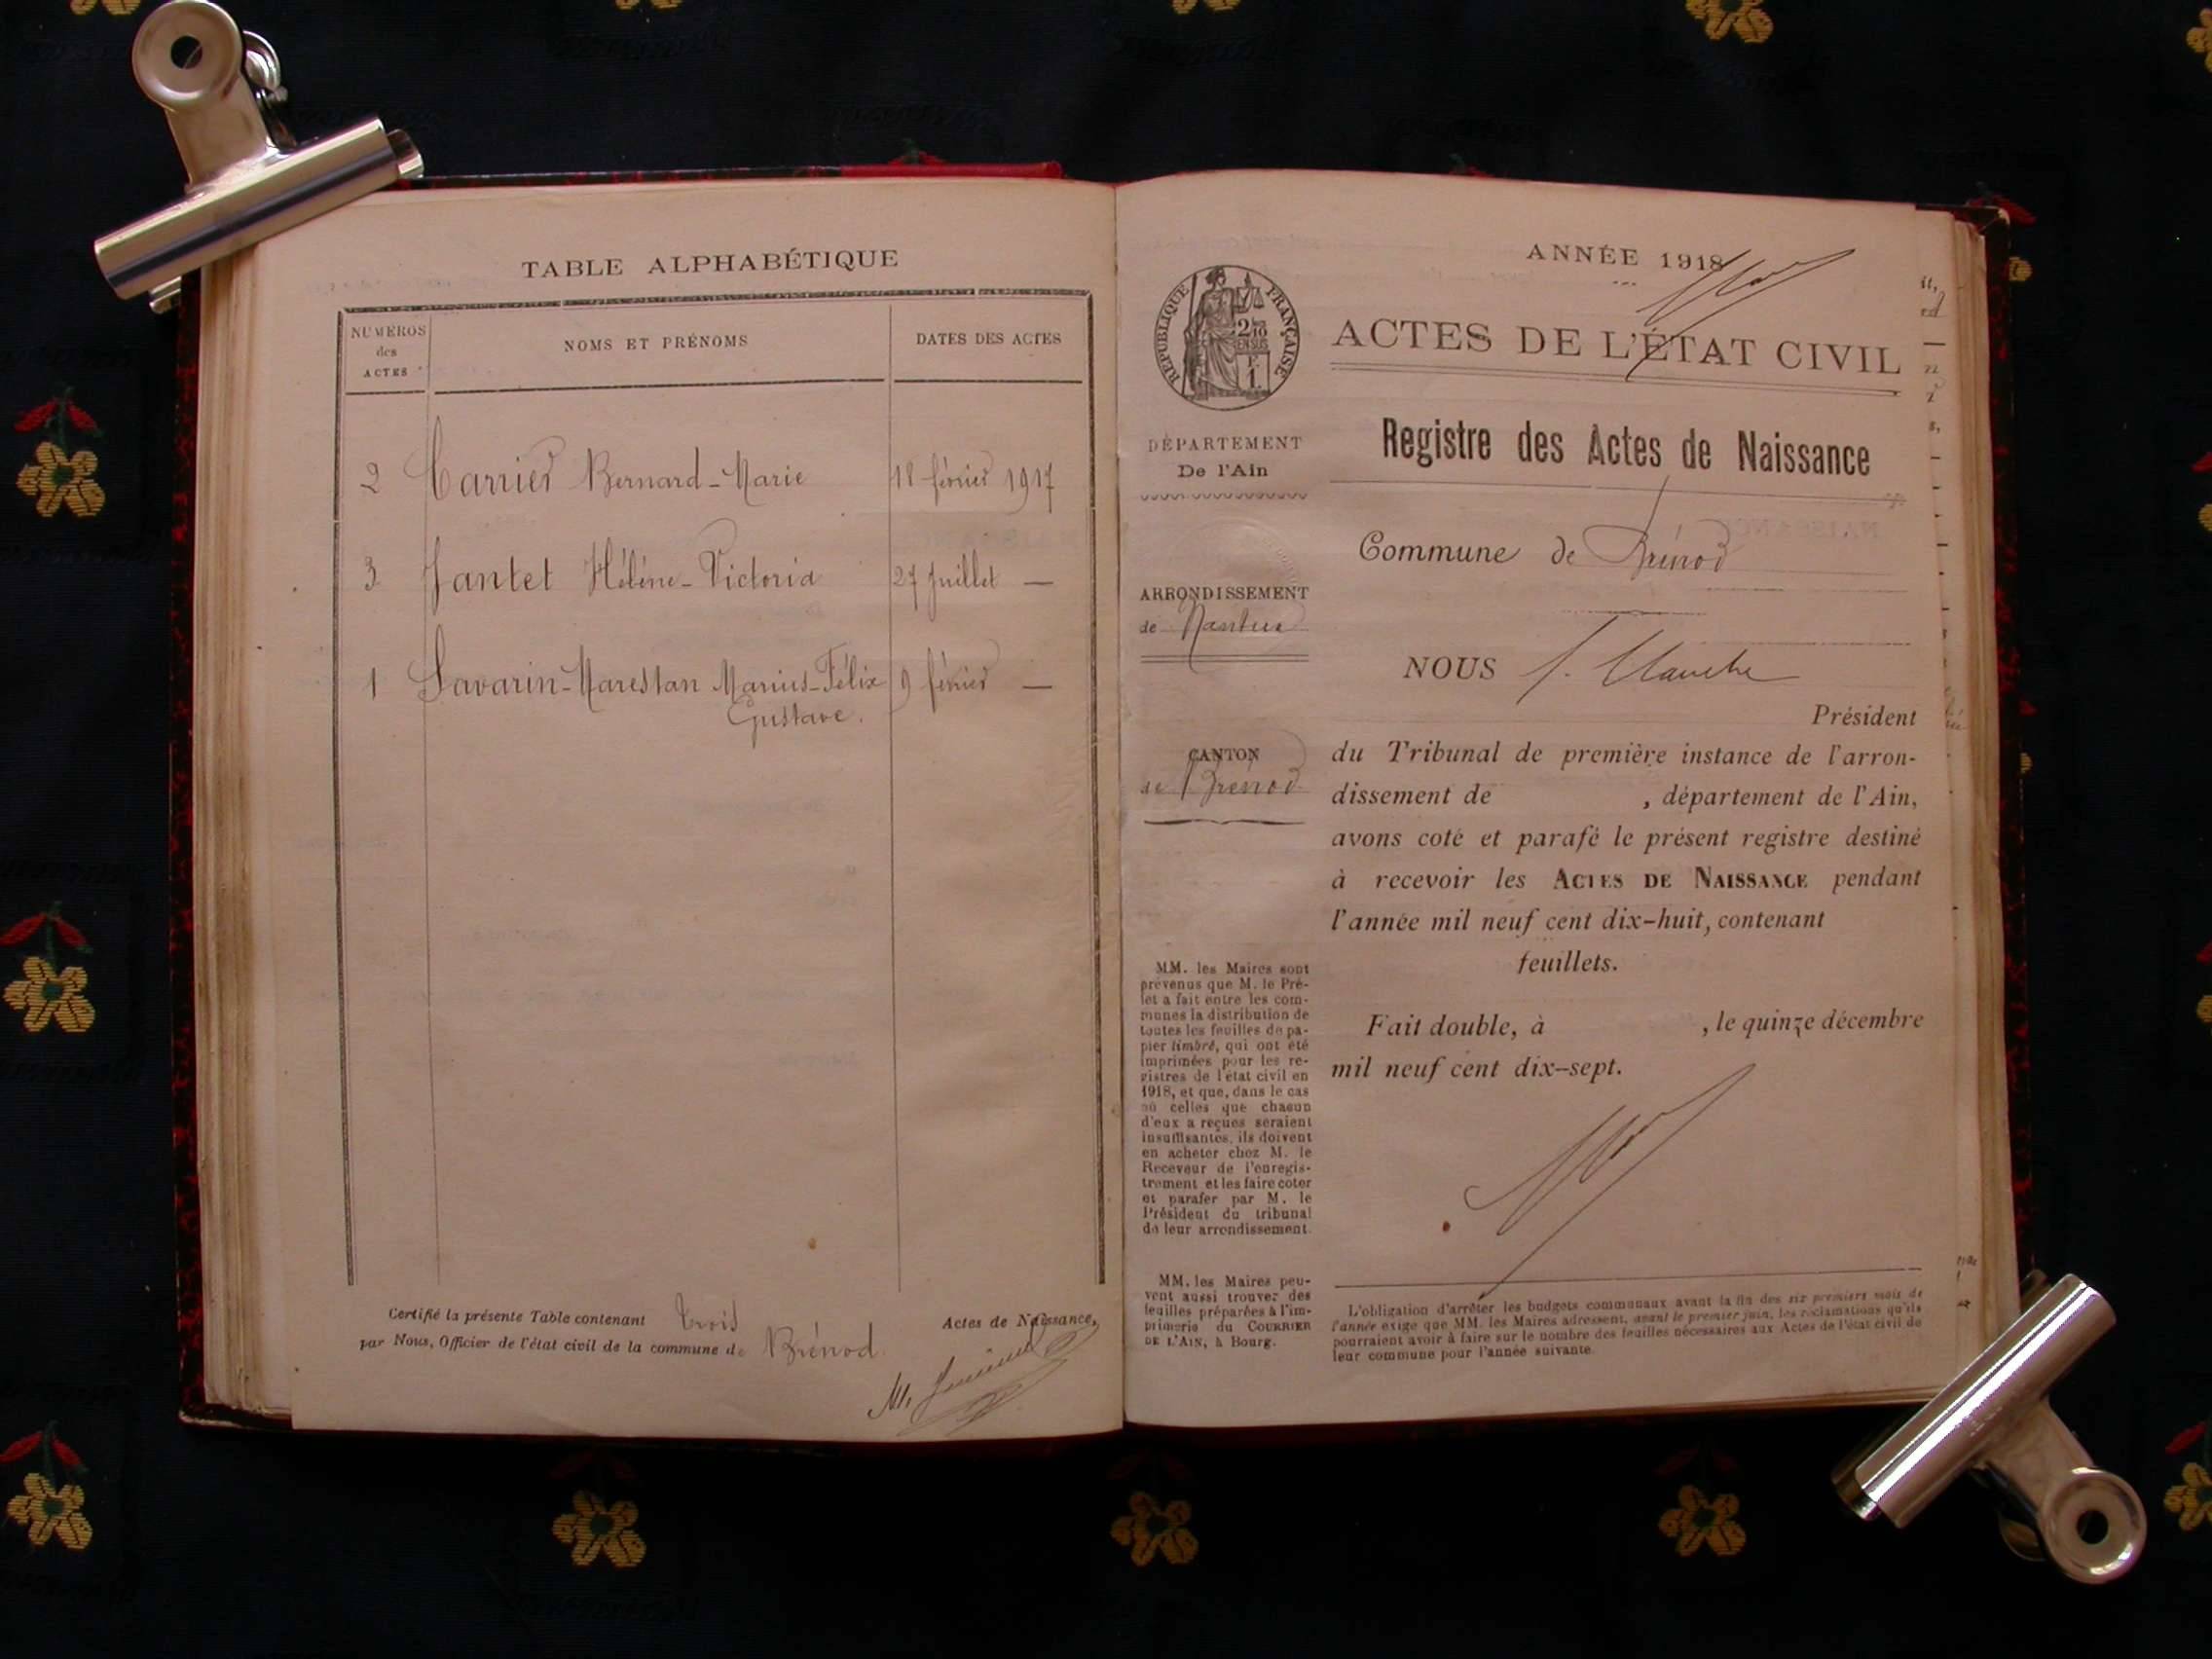 TABLE ALPHABÉTIQUE
NUMÉROS
des
ACTES
NOMS ET PRÉNOMS
DATES DES ACTES
2 Carrier Bernard-Marie 18 février 1917
3 Jantet Hélène-Victoria 27 Juillet —
1 Savarin-Marestan Marius-Félix 9 février —
Gustave.
Certifié la présente Table contenant trois Actes de Naissance,
par Nous, Officier de l'état civil de la commune de Brénod.
RÉPUBLIQUE FRANÇAISE
DÉPARTEMENT
De l'Ain
ARRONDISSEMENT
de Nantua
CANTON
de Brénod
MM. les Maires sont
prévenus que M. le Pré-
fet a fait entre les com-
munes la distribution de
toutes les feuilles de pa-
pier timbré, qui ont été
imprimées pour les re-
gistres de l'état civil en
1918, et que, dans le cas
où celles que chacun
d'eux a reçues seraient
insuffisantes, ils doivent
en acheter chez M. le
Receveur de l'enregis-
trement et les faire coter
et parafer par M. le
Président du tribunal
de leur arrondissement.
MM. les Maires peu-
vent aussi trouver des
feuilles préparées à l'im-
primerie du COURRIER
DE L'AIN, à Bourg.
ANNÉE 1918
ACTES DE L'ÉTAT CIVIL
Registre des Actes de Naissance
Commune de Brénod
NOUS
Président
du Tribunal de première instance de l'arron-
dissement de , département de l'Ain,
avons coté et parafé le présent registre destiné
à recevoir les ACTES DE NAISSANCE pendant
l'année mil neuf cent dix-huit, contenant
feuillets.
Fait double, à , le quinze décembre
mil neuf cent dix-sept.
L'obligation d'arrêter les budgets communaux avant la fin des six premiers mois de
l'année exige que MM. les Maires adressent, avant le premier juin, les réclamations qu'ils
pourraient avoir à faire sur le nombre des feuilles nécessaires aux Actes de l'état civil de
leur commune pour l'année suivante.